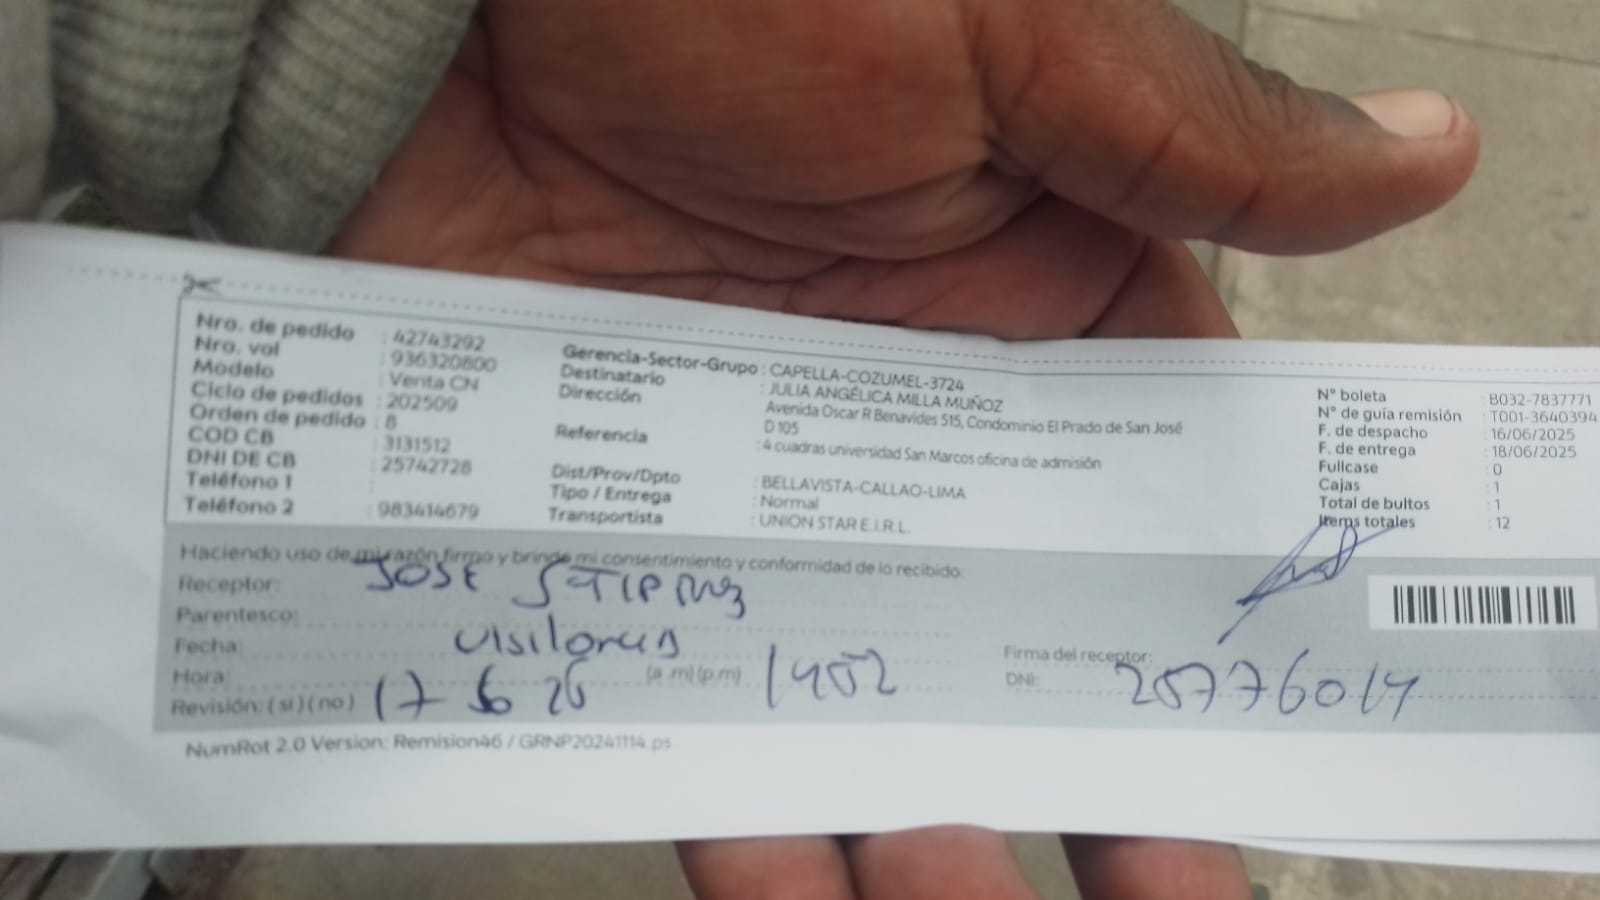 Nro. de pedido : 42743292
Nro. vol : 936320800
Modelo : Venta CN
Ciclo de pedidos : 202509
Orden de pedido : 8
COD CB : 3131512
DNI DE CB : 25742728
Teléfono 1 :
Teléfono 2 : 983414679
Gerencia-Sector-Grupo : CAPELLA-COZUMEL-3724
Destinatario : JULIA ANGÉLICA MILLA MUÑOZ
Dirección Avenida Oscar R Benavides 515, Condominio El Prado de San José
D 105
Referencia : 4 cuadras universidad San Marcos oficina de admisión
Dist/Prov/Dpto : BELLAVISTA-CALLAO-LIMA
Tipo / Entrega : Normal
Transportista : UNION STAR E.I.R.L.
N° boleta : B032-7837771
N° de guía remisión : T001-3640394
F. de despacho : 16/06/2025
F. de entrega : 18/06/2025
Fullcase : 0
Cajas : 1
Total de bultos : 1
Items totales : 12
Haciendo uso de mi razón firmo y brinde mi consentimiento y conformidad de lo recibido:
Receptor: JOSE
Parentesco:
Fecha:
Hora: (a .m) (p.m) 1402
Revisión: ( si ) ( no ) 17 6 25
Firma del receptor:
DNI: 25776014
NumRot 2.0 Version: Remision46 / GRNP20241114.ps